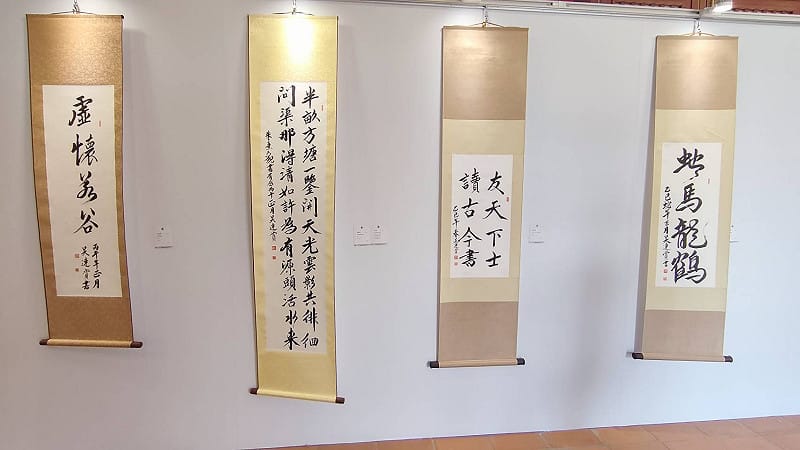 虛懷若谷
丙午年正月
半畝方塘一鑒開天光雲影共徘徊
問渠那得清如許為有源頭活水来
朱熹觀書有感丙午正月
友天下士
讀古今書
乙巳年
馬龍鶴
乙巳